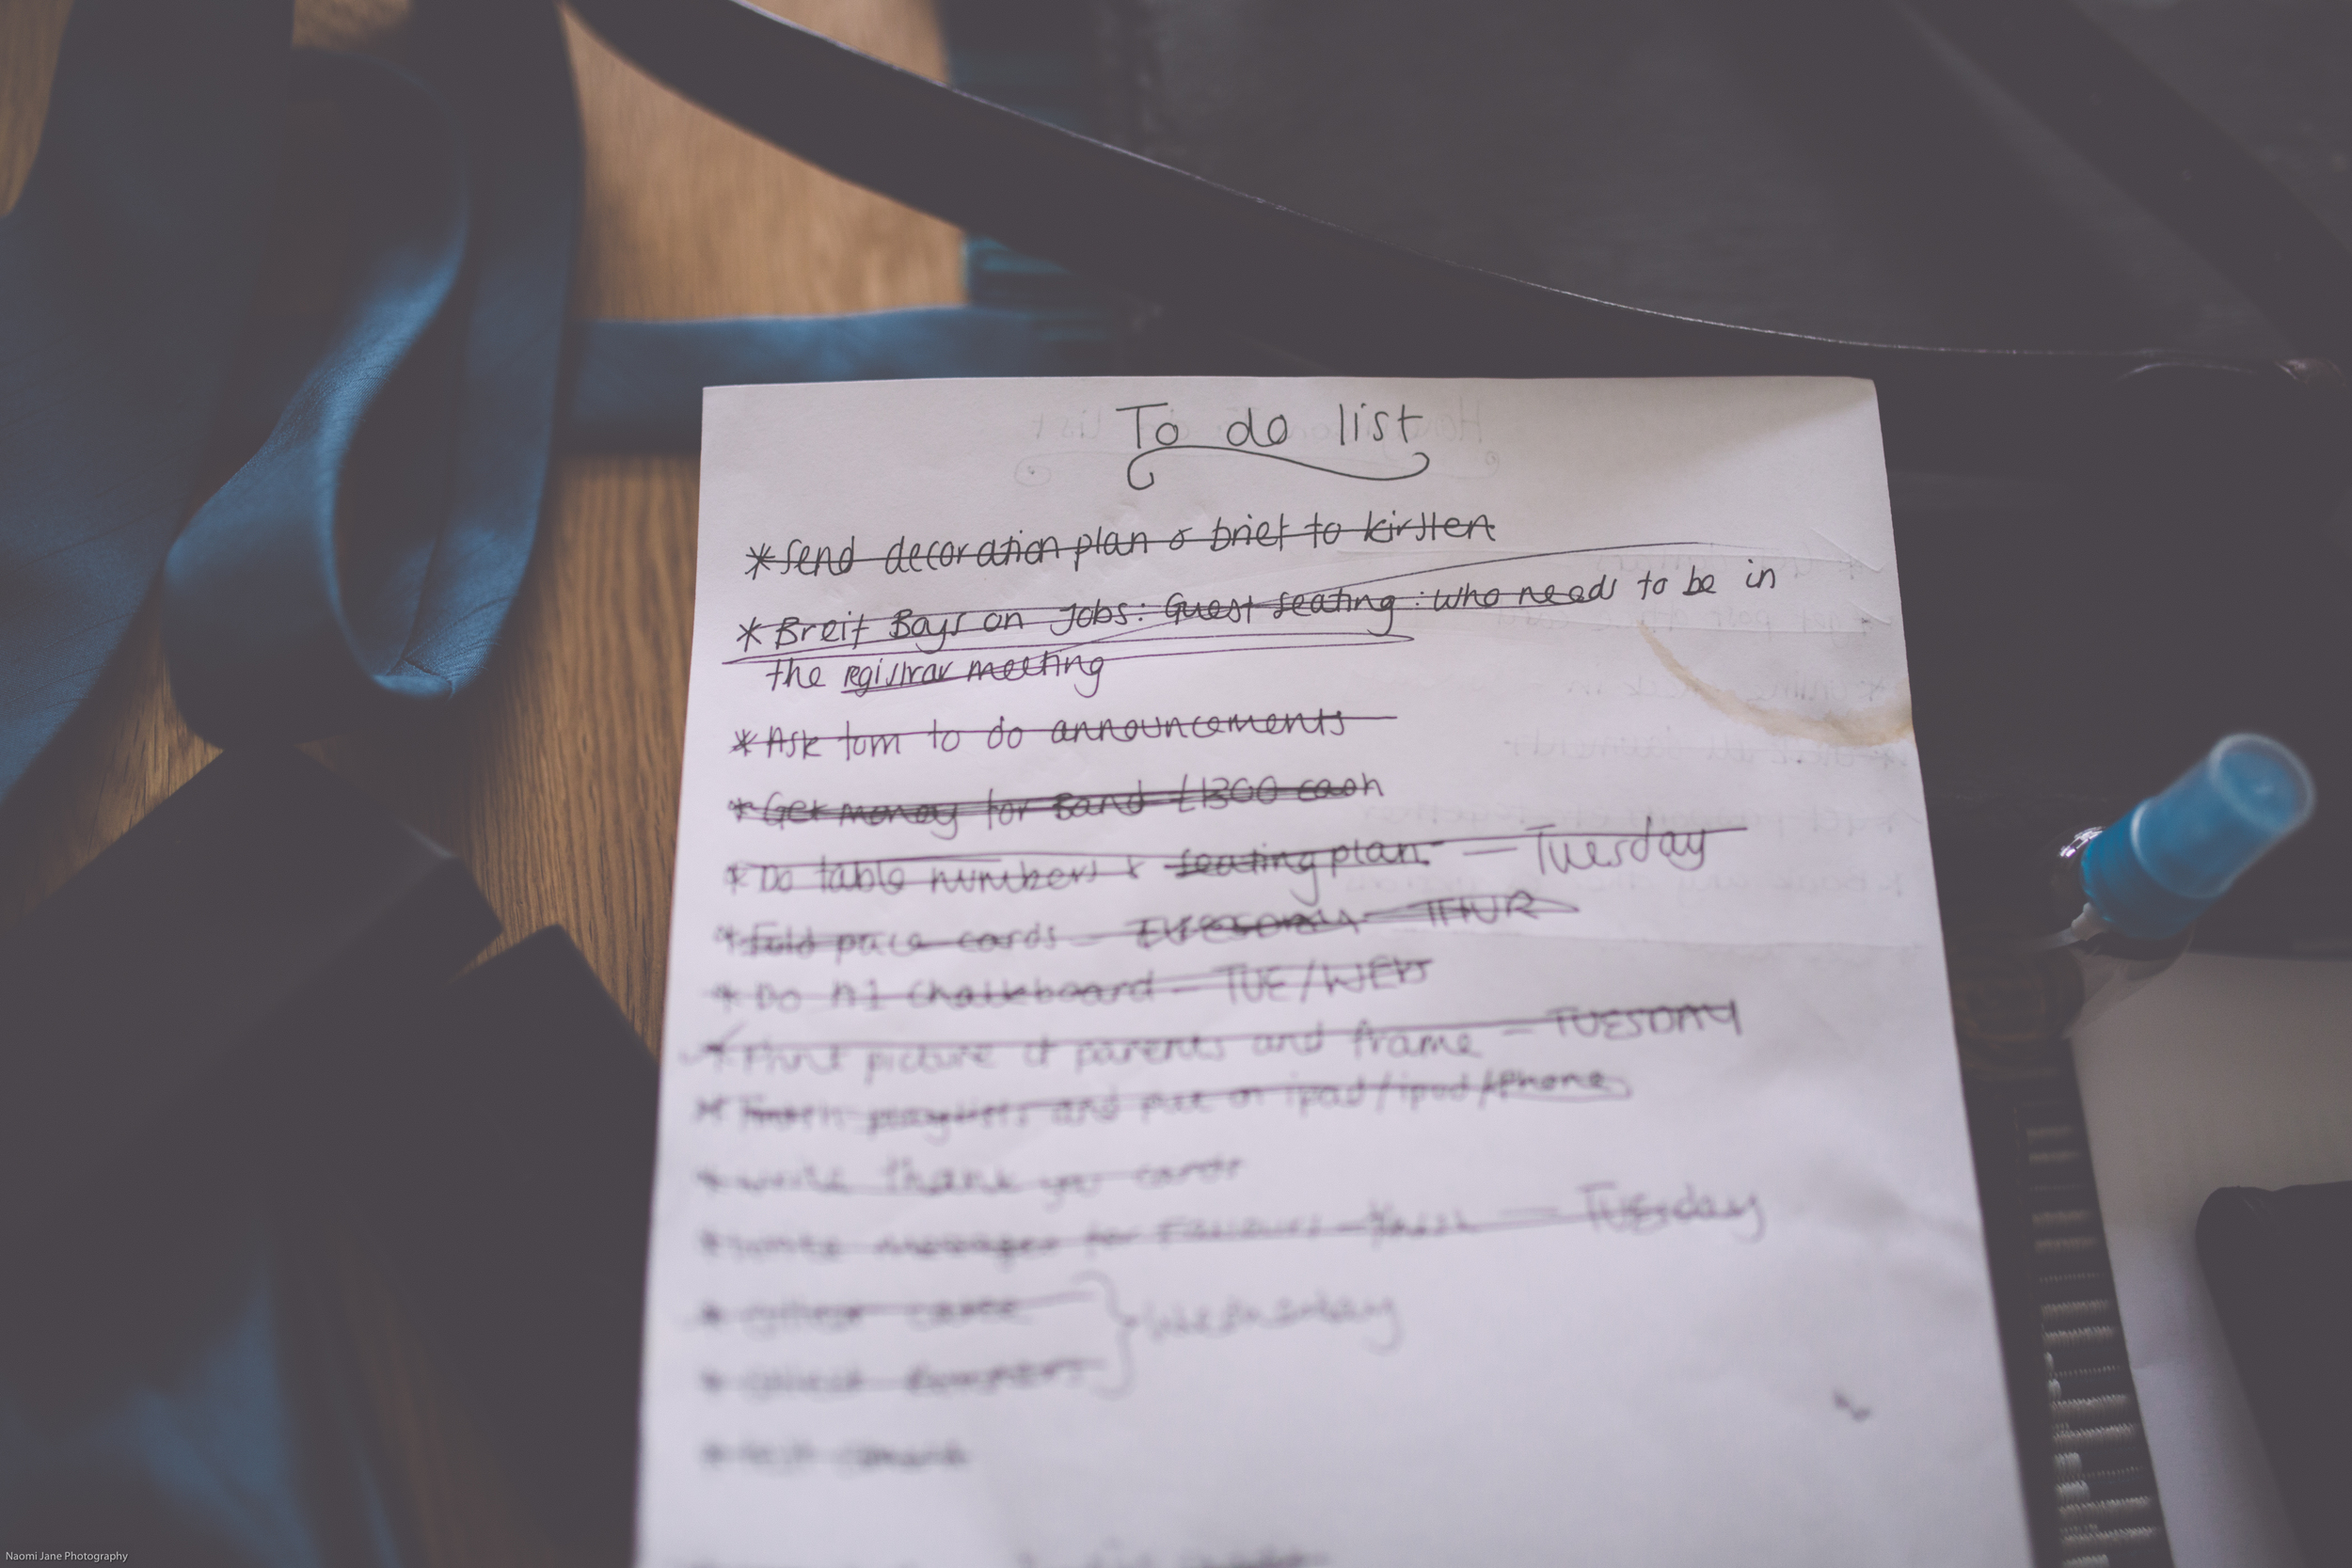 To do list
* Send decoration plan & brief to kirsten
* Breif Boys on Jobs: Guest seating: who needs to be in
the registrar meeting
* Ask tom to do announcements
* Get money for Band £1300 cash
* Do table numbers & seating plan. — Tuesday
* Fold place cards — THUR
* Do A1 Chalkboard — TUE/WEDS
* Print picture of parents and frame — TUESDAY
* Finish playlists and put on ipad/ipod/iPhone
* Write thank you cards
* Write messages for Favours — Tuesday
* Collect } Wednesday
* Collect
Naomi Jane Photography